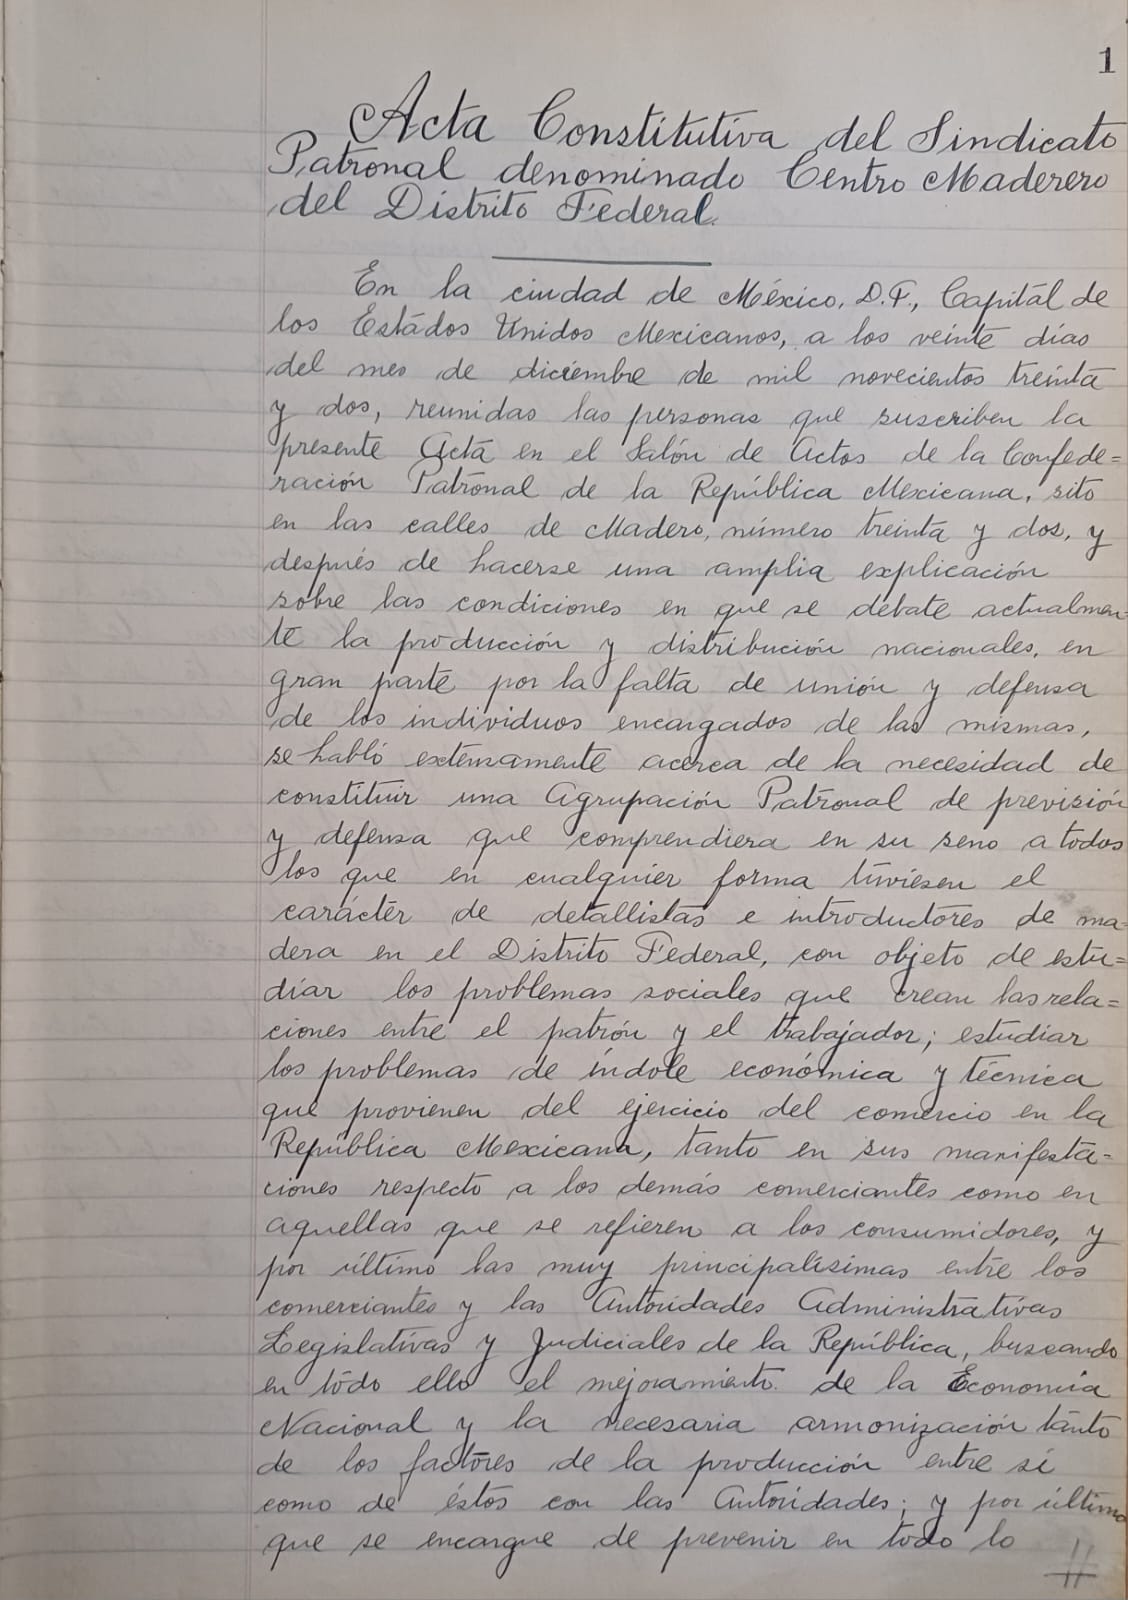 1
Acta Constitutiva del Sindicato
Patronal denominado Centro Maderero
del Distrito Federal.
En la ciudad de México, D.F., Capital de
los Estados Unidos Mexicanos, a los veinte días
del mes de diciembre de mil novecientos treinta
y dos, reunidas las personas que suscriben la
presente Acta en el Salón de Actos de la Confede=
ración Patronal de la República Mexicana, sito
en las calles de Madero, número treinta y dos, y
después de hacerse una amplia explicación
sobre las condiciones en que se debate actualmen-
te la producción y distribución nacionales, en
gran parte por la falta de unión y defensa
de los individuos encargados de las mismas,
se habló extensamente acerca de la necesidad de
constituir una Agrupación Patronal de previsión
y defensa que comprendiera en su seno a todos
los que en cualquier forma tuviesen el
carácter de detallistas e introductores de ma=
dera en el Distrito Federal, con objeto de estu=
diar los problemas sociales que crean las rela=
ciones entre el patrón y el trabajador; estudiar
los problemas de índole económica y técnica
que provienen del ejercicio del comercio en la
República Mexicana, tanto en sus manifesta=
ciones respecto a los demás comerciantes como en
aquellas que se refieren a los consumidores, y
por último las muy principalísimas entre los
comerciantes y las Autoridades Administrativas
Legislativas y Judiciales de la República, buscando
en todo ello el mejoramiento de la Economía
Nacional y la necesaria armonización tanto
de los factores de la producción entre sí
como de éstos con las Autoridades; y por último
que se encargue de prevenir en todo lo